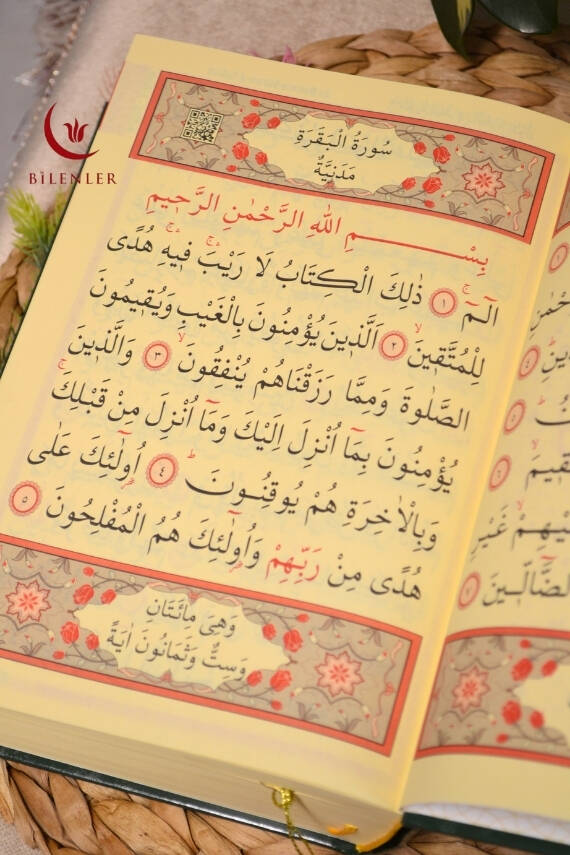 BİLENLER
سُورَةُ الْبَقَرَةِ
مَدَنِيَّةٌ
بِسْــــــــمِ اللهِ الرَّحْمٰنِ الرَّح۪يمِ
الٓمٓۚ ﴿١﴾ ذٰلِكَ الْكِتَابُ لَا رَيْبَۚ ف۪يهِۚ هُدًى
لِلْمُتَّق۪ينَۙ ﴿٢﴾ اَلَّذ۪ينَ يُؤْمِنُونَ بِالْغَيْبِ وَيُق۪يمُونَ
الصَّلٰوةَ وَمِمَّا رَزَقْنَاهُمْ يُنْفِقُونَۙ ﴿٣﴾ وَالَّذ۪ينَ
يُؤْمِنُونَ بِمَٓا اُنْزِلَ اِلَيْكَ وَمَٓا اُنْزِلَ مِنْ قَبْلِكَۚ
وَبِالْاٰخِرَةِ هُمْ يُوقِنُونَۜ ﴿٤﴾ اُو۬لٰٓئِكَ عَلٰى
هُدًى مِنْ رَبِّهِمْ وَاُو۬لٰٓئِكَ هُمُ الْمُفْلِحُونَ ﴿٥﴾
وَهِىَ مِائَتَانِ
وَسِتٌّ وَثَمَانُونَ اٰيَةً